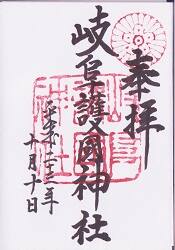 奉拝
岐阜護國神社
平成二十二年
十月十日